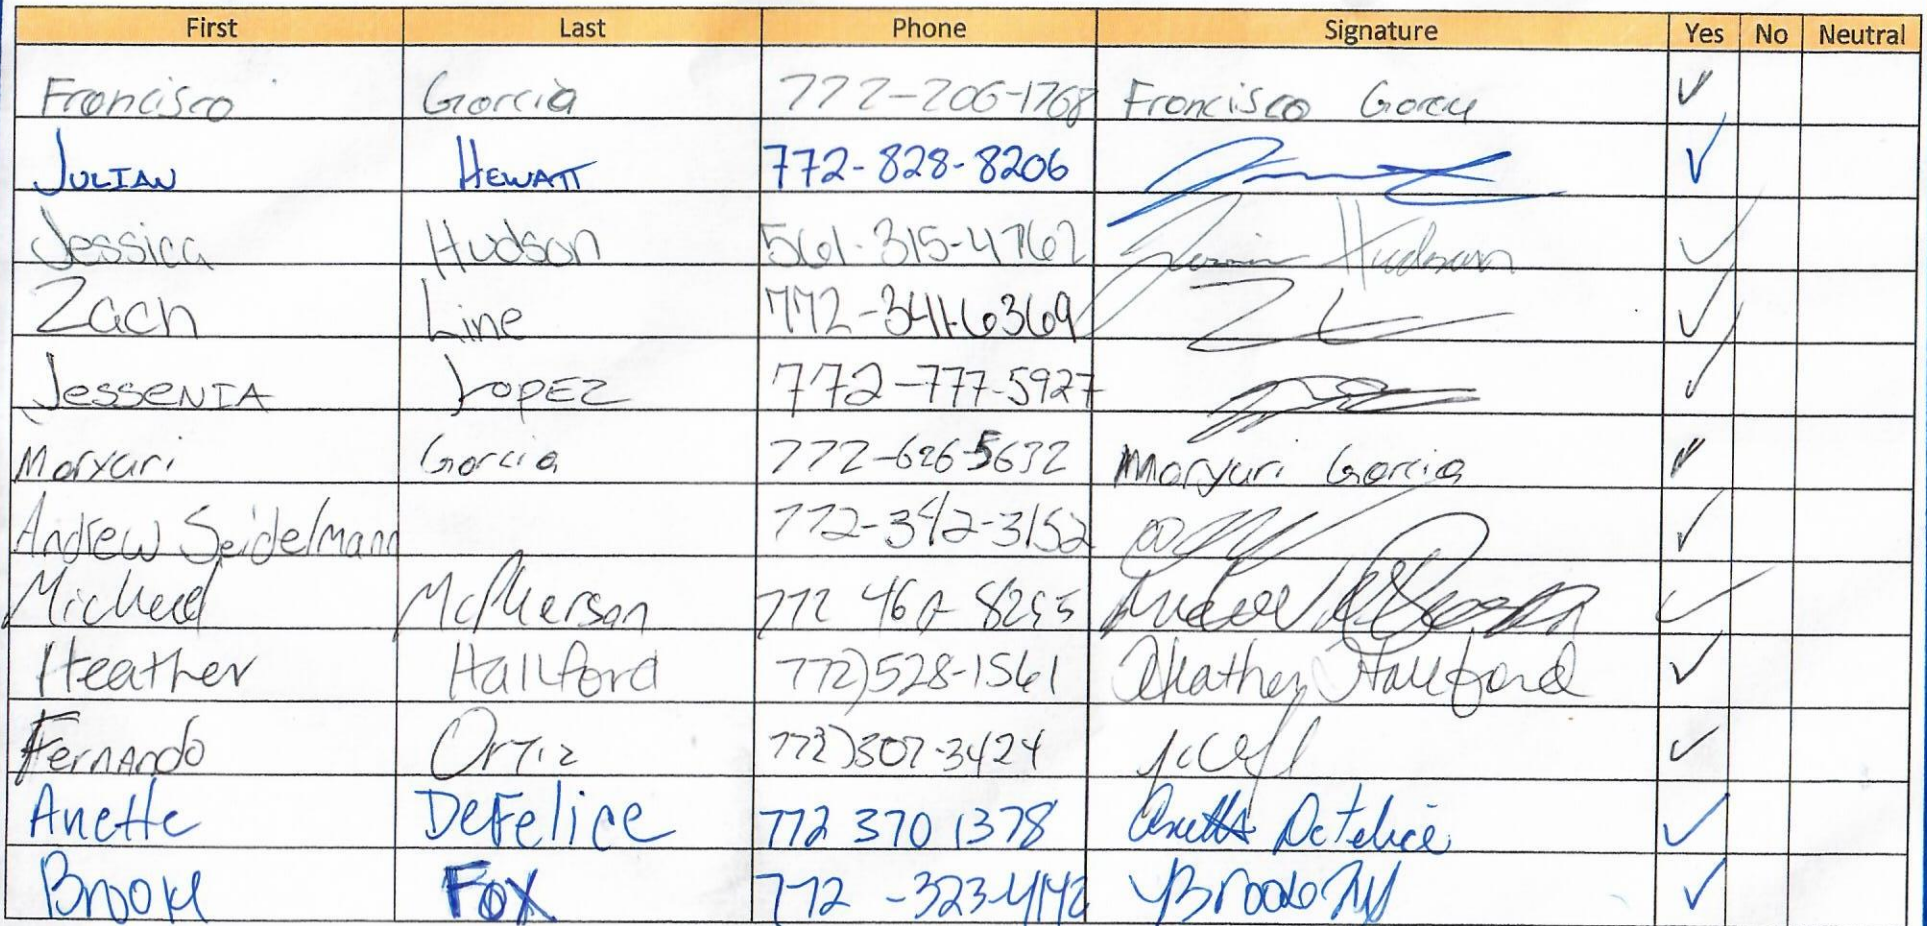 First Last Phone Signature Yes No Neutral
Francisco Garcia 772-206-1768 Francisco Garcia ✓
JULIAN HEWATT 772-828-8206 ✓
Jessica Hudson 561-315-4762 Hudson ✓
Zach Line 772-341-6369 ZL ✓
JESSENIA LOPEZ 772-777-5927 ✓
Maryuri Garcia 772-626-5632 Maryuri Garcia ✓
Andrew Seidelmann 772-342-3152 ✓
Michael McPherson 772 8295 ✓
Heather Hallford 772)528-1561 Heather Hallford ✓
Fernando Ortiz 772)307-3424 ✓
Anette DeFelice 772 370 1378 Anette DeFelice ✓
Brooke Fox 772-323-4142 Brooke Fox ✓